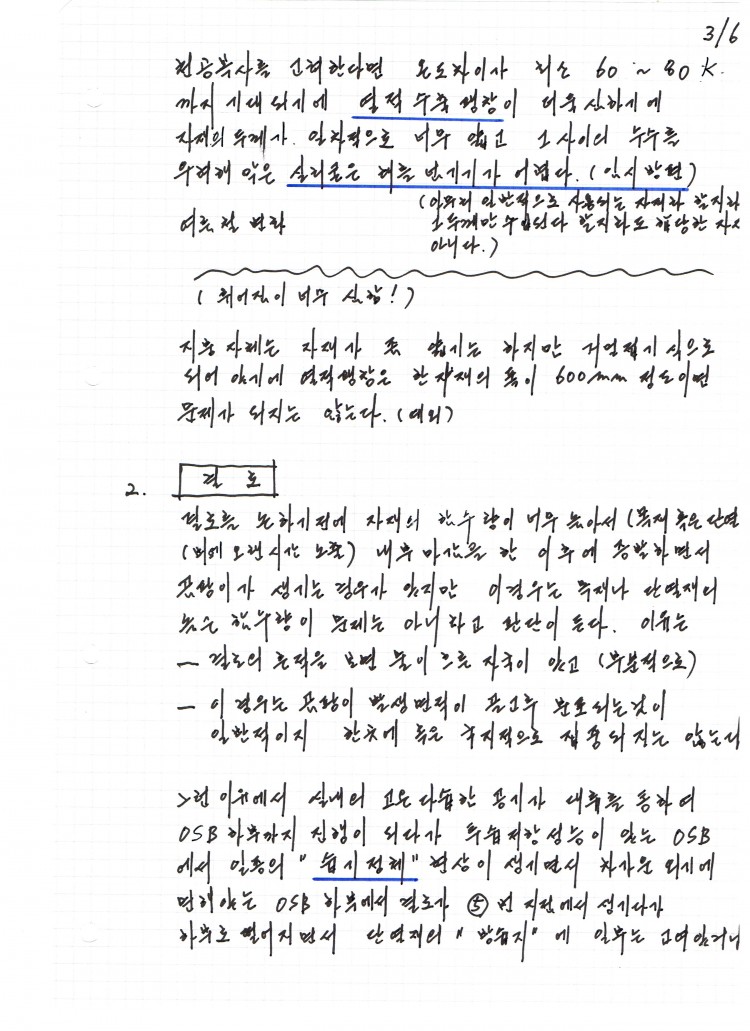 3/6
천공복사를 고려한다면 온도차이가 최소 60 ~ 80 K.
까지 기대되기에 열적 수축 팽창이 더욱 심하기에
자재의 두께가 일차적으로 너무 얇고 그 사이의 누수를
우려해 막은 실리콘은 해를 넘기기가 어렵다. (임시방편)
(아무리 일반적으로 사용되는 자재라 할지라
여름철 변화
그 두께만 수입된다 할지라도 합당한 자재
아니다.)
( 휘어짐이 너무 심함! )
지붕 자체는 자재가 좀 얇기는 하지만 거멀접기 식으로
되어 있기에 열적팽창은 한 자재의 폭이 600mm 정도이면
문제가 되지는 않는다. (예외)
2. 결 로
결로를 논하기전에 자재의 함수량이 너무 높아서 (목재 혹은 단열
(비에 오랜시간 노출) 내부 마감을 한 이후에 증발하면서
곰팡이가 생기는 경우가 있지만 이경우는 목재나 단열재의
높은 함수량이 문제는 아니라고 판단이 든다. 이유는
- 결로의 흔적을 보면 물이 흐른 자국이 있고 (부분적으로)
- 이 경우는 곰팡이 발생면적이 골고루 분포되는것이
일반적이지 한곳에 혹은 국지적으로 집중되지는 않는다
그런 이유에서 실내의 고온다습한 공기가 대류를 통하여
OSB 하부까지 진행이 되다가 투습저항성능이 있는 OSB
에서 일종의 "습기정체" 현상이 생기면서 차가운 외기에
면해있는 OSB 하부에서 결로가 ⑤ 번 지점에서 생기다가
하부로 떨어지면서 단열재의 "방습지" 에 일부는 고여있거나